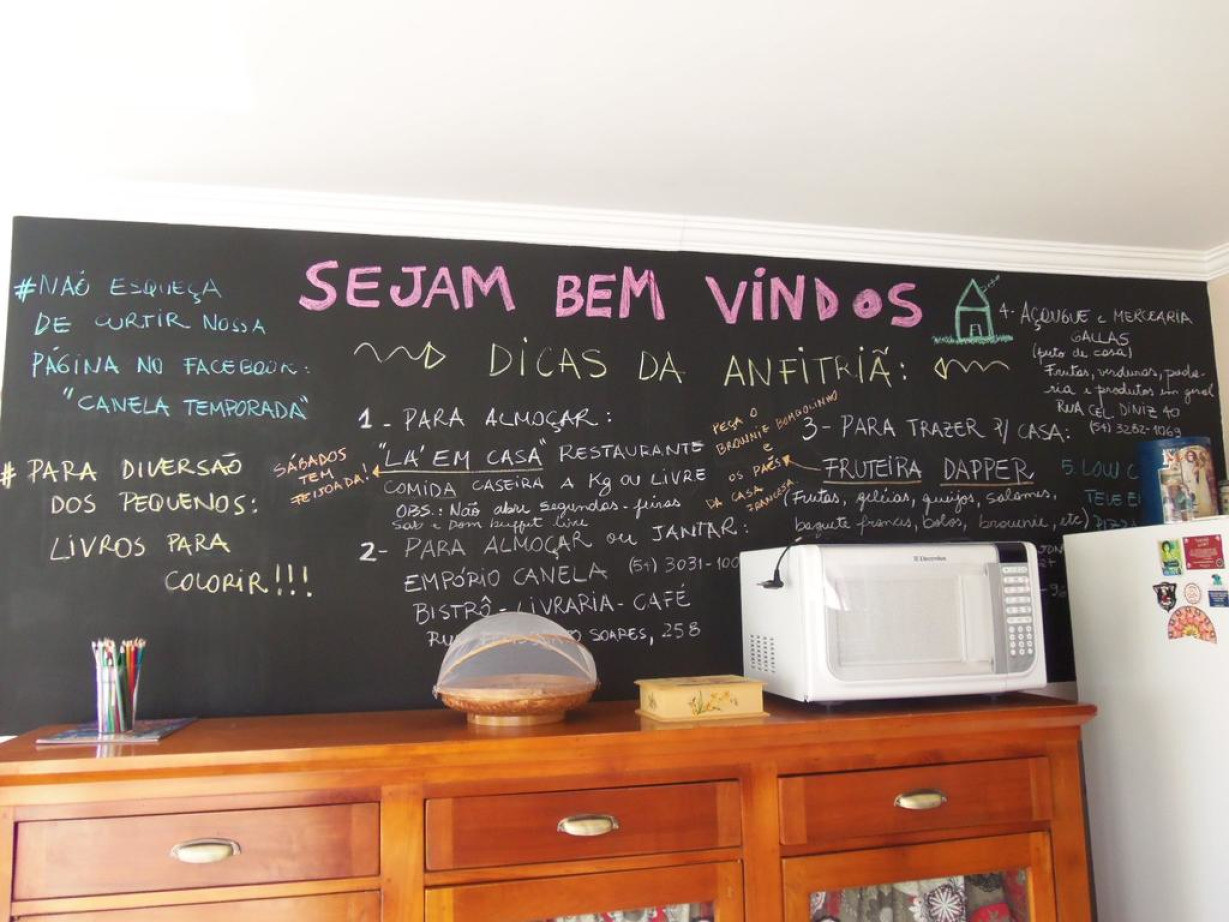 SEJAM BEM VINDOS
DICAS DA ANFITRIÃ:
#NÃO ESQUEÇA
DE CURTIR NOSSA
PÁGINA NO FACEBOOK:
"CANELA TEMPORADA"
# PARA DIVERSÃO
DOS PEQUENOS:
LIVROS PARA
COLORIR!!!
1- PARA ALMOÇAR:
"LÁ EM CASA" RESTAURANTE
COMIDA CASEIRA A Kg OU LIVRE
OBS.: Não abre segundas-feiras
Sab e Dom buffet livre
SÁBADOS
TEM
FEIJOADA!
2- PARA ALMOÇAR OU JANTAR:
EMPÓRIO CANELA (54) 3031-100
BISTRÔ - LIVRARIA - CAFÉ
SOARES, 258
PEÇA O
BROWNIE
E
OS PÃES
DA CASA
3- PARA TRAZER P/ CASA:
FRUTEIRA DAPPER
(Frutas, geléias, queijos, salames,
baguete frances, bolos, brownie, etc)
4- AÇOUGUE e MERCEARIA
GALLAS
(perto de casa)
Frutas, verduras, pada-
ria e produtos em geral
RUA CEL DINIZ 40
(54) 3282-1069
5. LOW C
TELE E
PIZZ
Electrolux